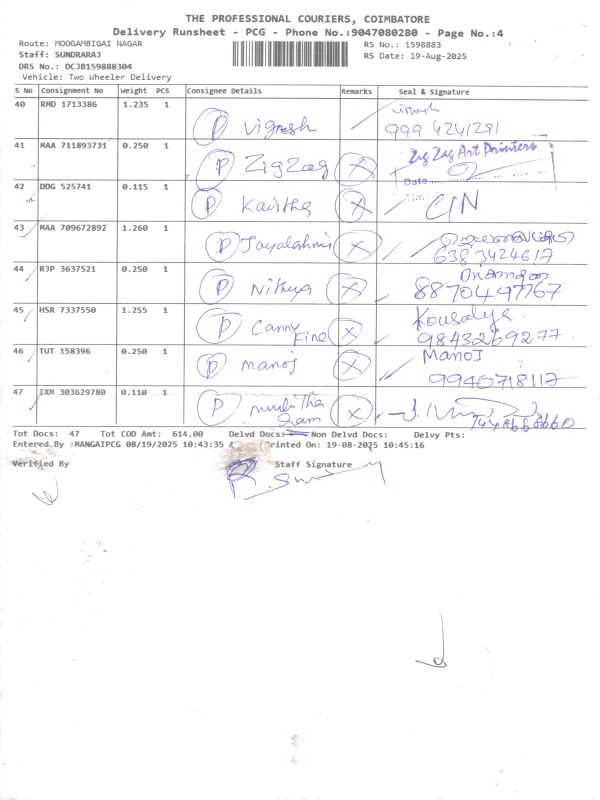 THE PROFESSIONAL COURIERS, COIMBATORE
Delivery Runsheet - PCG - Phone No.:9047080280 - Page No.:4
Route: MOOGAMBIGAI NAGAR RS No.: 1598883
Staff: SUNDRARAJ RS Date: 19-Aug-2025
DRS No.: DCJB159888304
Vehicle: Two Wheeler Delivery
S No Consignment No Weight PCS Consignee Details Remarks Seal & Signature
40 RMD 1713386 1.235 1 P Vignesh
999 4241291
41 MAA 711893731 0.250 1 P ZigZag X Zig Zag Art Printers
Date
42 DDG 525741 0.115 1 P X C/N
43 MAA 709672892 1.260 1 P Jayalahmi X
6383424617
44 RJP 3637521 0.250 1 P Nithya X
8870497767
45 HSR 7337550 1.255 1 P Canny Fine X Kousalya
9843269277
46 TUT 158396 0.250 1 P manoj X Manoj
9940718117
47 IXM 303629780 0.110 1 P X
Tot Docs: 47 Tot COD Amt: 614.00 Delvd Docs: Non Delvd Docs: Delvy Pts:
Entered By :MANGAIPCG 08/19/2025 10:43:35 Printed On: 19-08-2025 10:45:16
Verified By Staff Signature